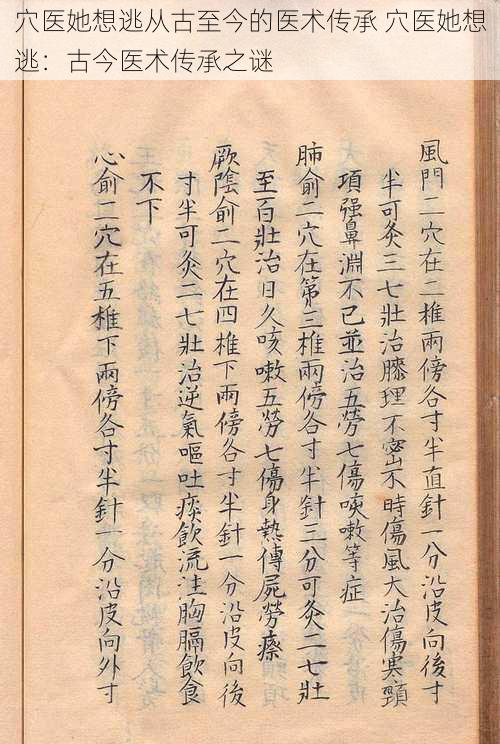 穴医她想逃从古至今的医术传承 穴医她想
逃：古今医术传承之谜
風門二穴在二椎兩傍各寸半直針一分沿皮向後寸
半可灸三七壯治腠理不密不時傷風大治傷寒頸
項强鼻淵不已並治五勞七傷咳嗽等症
肺俞二穴在第三椎兩傍各寸半針三分可灸二七壯
至百壯治日久咳嗽五勞七傷身熱傳屍勞瘵
厥陰俞二穴在四椎下兩傍各寸半針一分沿皮向後
寸半可灸二七壯治逆氣嘔吐痰飲流注胸膈飲食
不下
心俞二穴在五椎下兩傍各寸半針一分沿皮向外寸